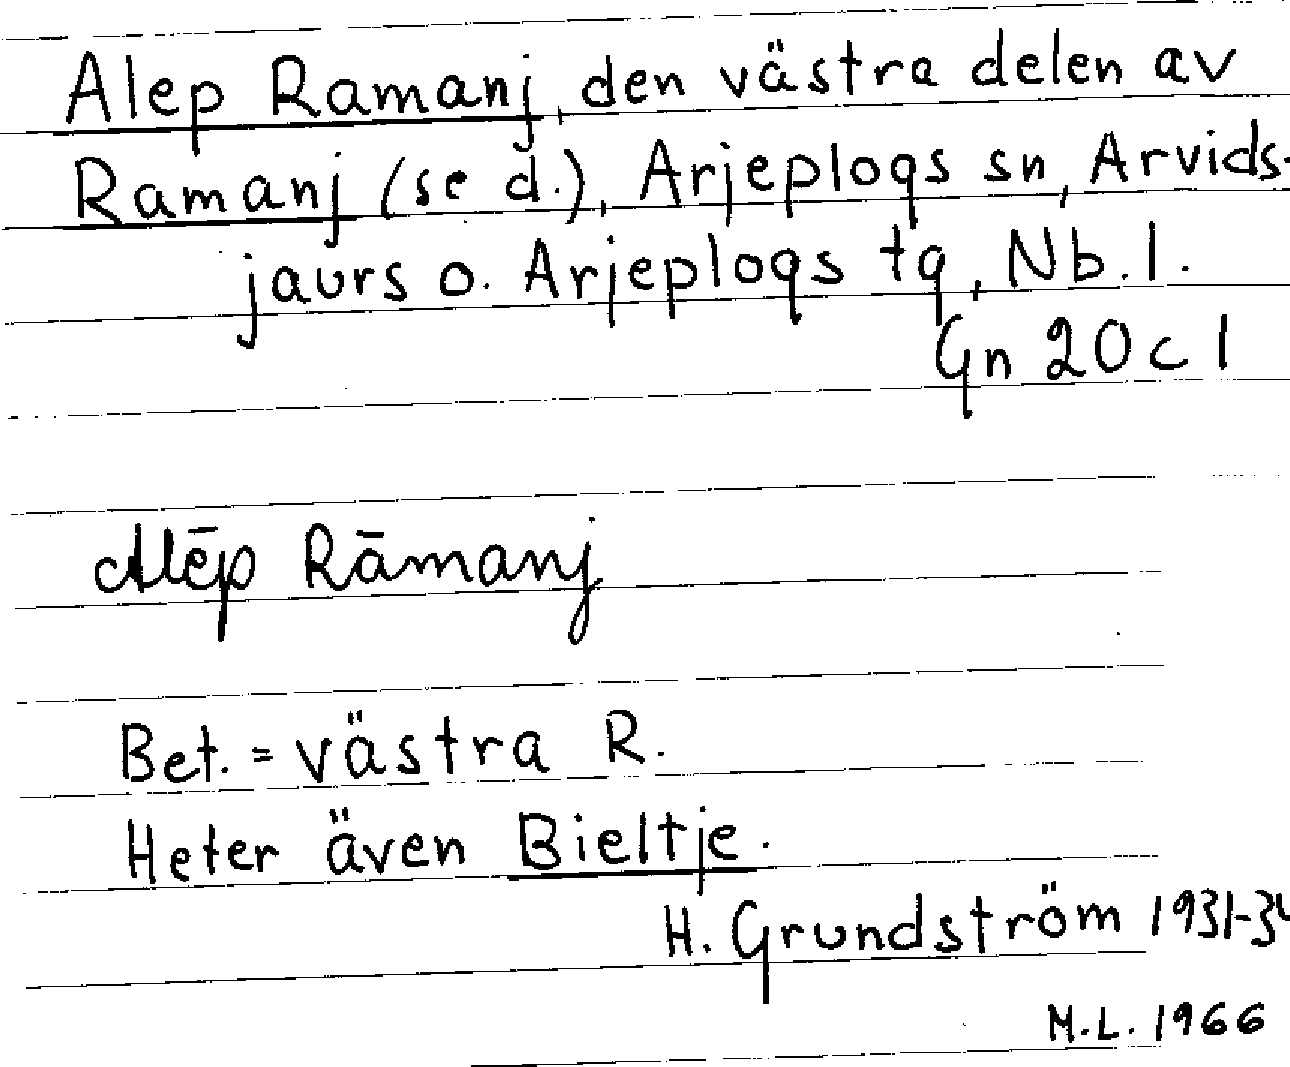 Alep Ramanj, den västra delen av
Ramanj (se d.), Arjeplogs sn, Arvids-
jaurs o. Arjeplogs tg, Nb. l.
Gn 20 c 1
Alēp Rāmanj
Bet. = västra R.
Heter även Bieltje.
H. Grundström 1931-34
M.L. 1966